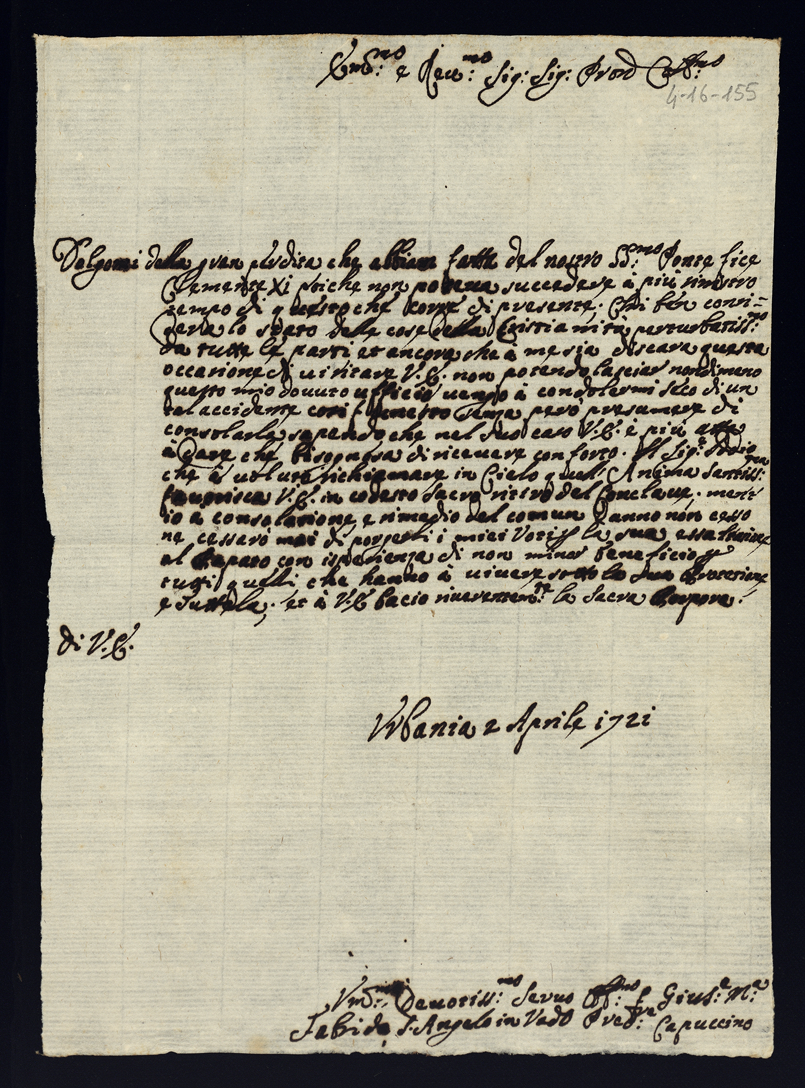 Em:mo e Rev:mo Sig: Sig: Prod Coll:mo
4-16-155
Dolgomi della gran perdita che abbiam fatta del nostro SS:mo Pontefice
Clemente XI poiche non poteva succedere à più sinistro
tempo di questo che corre di presente. Chi ben consi=
dera lo stato delle cose della Cristianità perturbatiss:mo
da tutte le parti et ancora che à me sia discara questa
occasione di visitare V.E. non potendo lasciar nondimeno
questo mio dovuto ufficio vengo à condolermi seco di un
tal accidente così funestro senza però presumere di
consolarla sapendo che nel suo caso V.E. è più atta
à dare che bisognosa di ricevere conforto. Il Sig:r Iddio
che à voluto richiamare in Cielo quell'Anima Santiss:ma
favorisca V.E. in codesto Sacro ritiro del Conclave.
io a consolatione e rimedio del comun danno non cesso
ne cesserò mai di porgerli i miei Voti la sua essaltatione
al Papato con isperienza di non minor beneficio
tutti quelli che hanno à vivere sotto la sua Protetione
e Tuttela. et à V.E. bacio riverentem:te la Sacra Porpora.
di V.E.
Vrbania 2 Aprile 1721
Devotiss:mo Servo Giusᵉ Mᵃ
da S. Angelo in Vado Pred:re Capuccino